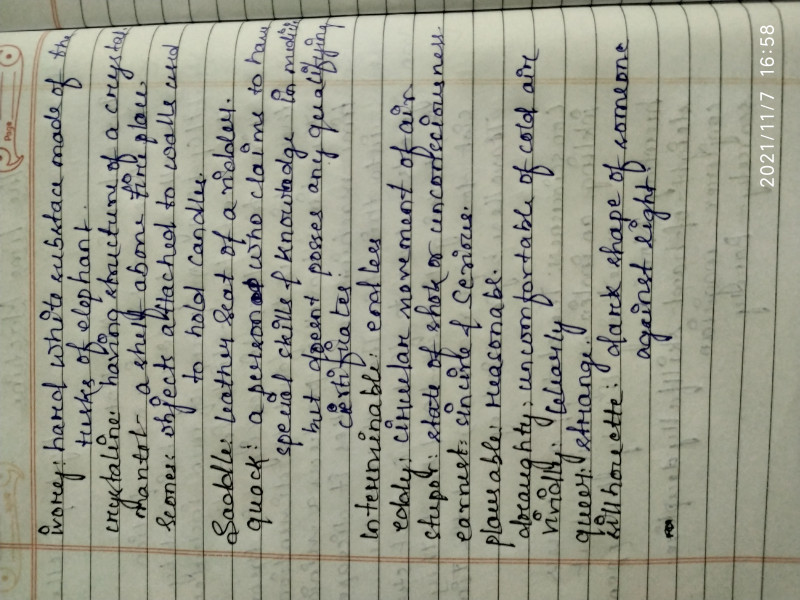 ivorey: hard white substace made of the
tusks of elephant.
crystaline: having structure of a crystal.
mantst - a shelf above fire place.
Scones: objects attached to walls and
to hold candle.
Saddle: leather Seat of a riddler.
quack: a person who claims to have
special skills & knowledge in medicine
but doesnt posses any qualifying
certificates.
Interminable: endless
eddy: circular movement of air
stupor: state of shok or unconsciousness.
earnest: sincire & serious.
plausable: reasonable.
draughty: uncomfortable of cold air
Vividly: clearly
queer: strange.
sillhouette: dark shape of someone
against light.
Page
2021/11/7 16:58